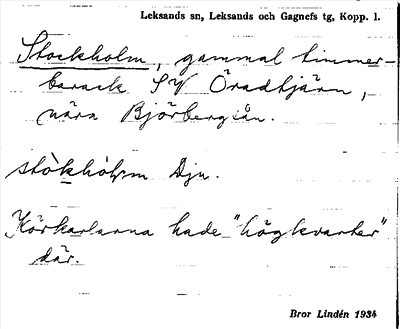 Leksands sn, Leksands och Gagnefs tg, Kopp. l.
Stockholm, gammal timmer-
barack SV Öradtjärn,
nära Björbergsån.
stòkhól̥m Dju.
Körkarlarna hade "högkvarter"
där.
Bror Lindén 1934